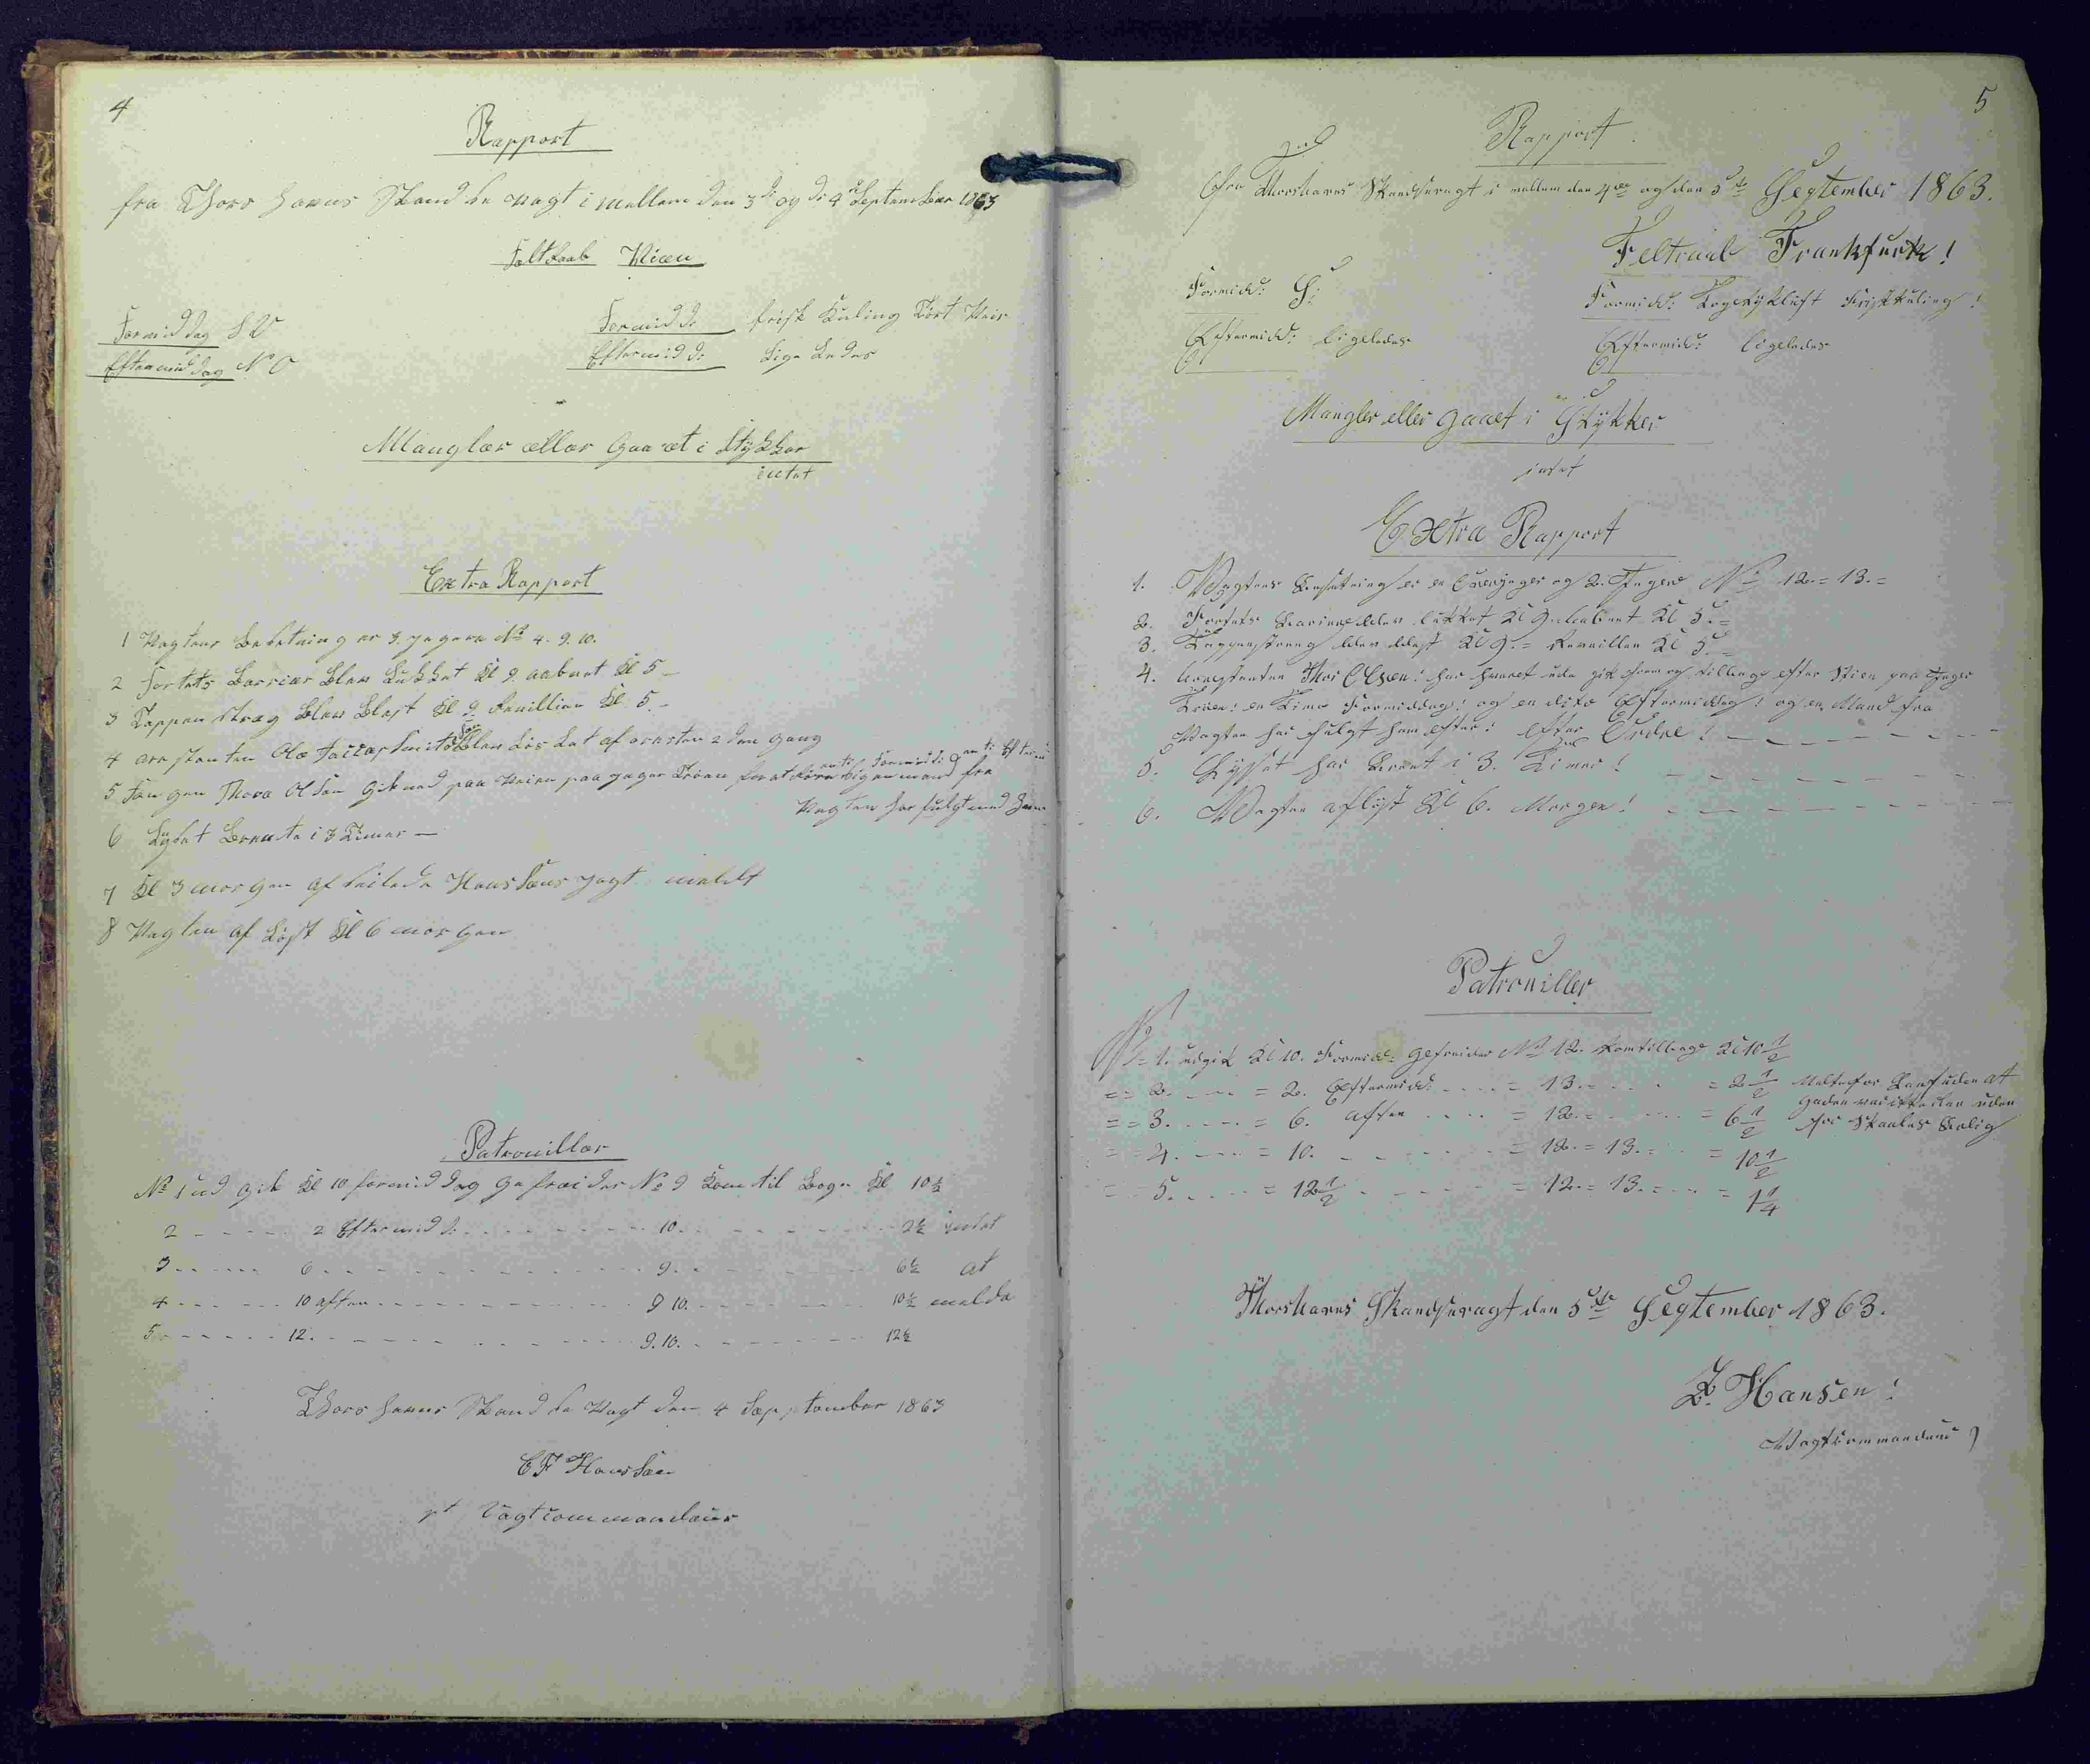 4
Rapport
fra Thors havns Skandse vagt i mellem den 3d og d: 4d September 1863
Feltraab Wien
Formiddag S V
Eftermiddag N O
Formidd: frisk Kuling Tørt Veir
Eftermidd: Lige Ledes
Mangler eller Gaaet i Stykker
intet
Extra Rapport
1 Vagtens Besetning er 3 jegere No 4. 9. 10.
2 Fortets Barrier Blev Lukket Kl 9 aabnet Kl 5 -
3 Tappen stræg Blev Blest Kl 9 Revillien Kl 5. -
4 arestanten Ole Blev Løs Lat af aresten 2 den gang
5 Fangen Thora Olsen Gik ned paa Veien paa jager en mand fra
Vagten har fulgt med ham
6 Lyset Brente i 3 Timer —
7 Kl 3 morgen af seilede Hans Søns jagt meldt
8 Vagten af Løst Kl 6 morgen
Patrouiller
No 1 ud gik Kl 10 formiddag Gefreider No 9 Kom til Bage Kl 10½
2 - - - - - 2 Eftermidd: - - - - - 10. - - - - - 2½ intet
3 - - - - - 6 - - - - - 9. - - - - - 6½ at
4 - - - - - 10 aften - - - - - 9 10. - - - - - 10½ melde
5 - - - - - 12. - - - - - 9. 10. - - - - - 12½
Thors havns Skandse Vagt den 4 September 1863
C F Hanssen
pt Vagtcommandeur
5
Rapport
Fra Thorshavns Skandsevagt i mellem den 4de og den 5te September 1863.
Feltraab Frankfurt!
Formidd: S:
Eftermidd: ligeledes
Formidd: Friskkuling!
Eftermidd: ligeledes
Mangler eller gaaet i Stykker
intet
Extra Rapport
1. Vagtens Besetning er en Overjæger og 2. Jægere No 12 = 13. =
2. Fortets Barriere blev lukket Kl 9. aabnet Kl 5. =
3. Tappenstreng blev blest Kl 9. = Reveillen Kl 5. =
4. Arrestanten Thor Olsen! har været ude gik frem og tilbage efter Veien paa Jæger
en Time Formiddag! og en dito Eftermiddag! og en Mand fra
Vagten har fulgt ham efter: efter Ordre! - - - - -
5. Lysset har Brent i 3. Timer! - - - - -
6. Vagten afløst Kl 6. Morgen! - - - - -
Patrouiller
No = 1. udgik Kl 10. Formidd: Gefreider No 12. kom tilbage Kl 10½
= = 2. - - - = 2. Eftermidd: - - - = 13. - - - = 2½
= = 3. - - - = 6. aften - - - = 12. - - - = 6½
= = 4. - - - = 10. - - - = 12. = 13. - - = 10½
= = 5. - - - = 12½ - - - = 12. = 13. - - = 1¼
Thorshavns Skandsevagt den 5te September 1863.
Hansen!
Vagtcommandeur